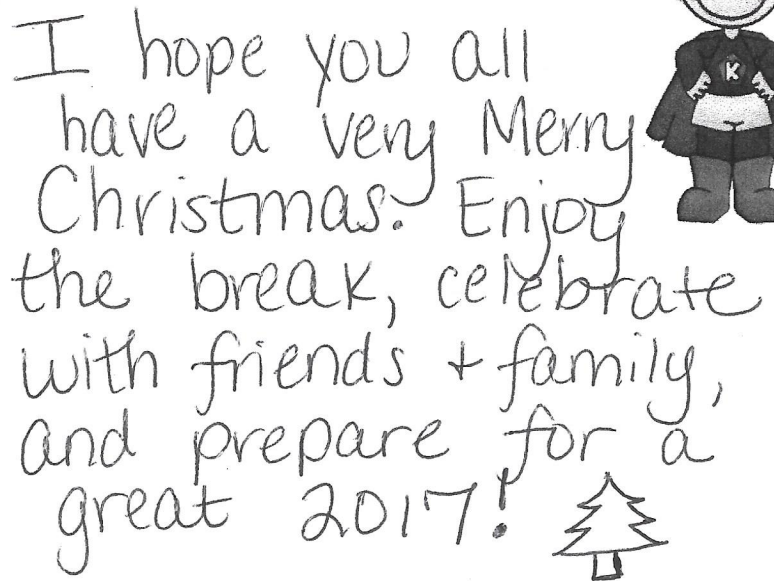 I hope you all
have a very Merry
Christmas. Enjoy
the break, celebrate
with friends + family,
and prepare for a
great 2017!
K